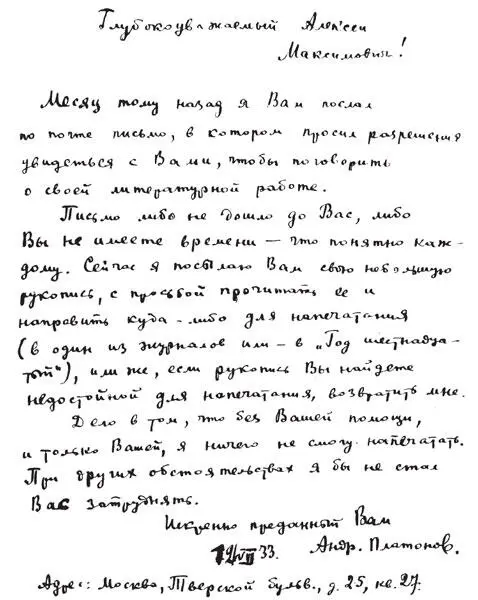 Глубокоуважаемый Алексей
Максимович!
Месяц тому назад я Вам послал
по почте письмо, в котором просил разрешения
увидеться с Вами, чтобы поговорить
о своей литературной работе.
Письмо либо не дошло до Вас, либо
Вы не имеете времени — что понятно каж-
дому. Сейчас я посылаю Вам свою небольшую
рукопись, с просьбой прочитать ее и
направить куда-либо для напечатания
(в один из журналов или – в „Год шестнадца-
тый“), или же, если рукопись Вы найдете
недостойной для напечатания, возвратить мне.
Дело в том, что без Вашей помощи,
и только Вашей, я ничего не смогу напечатать.
При других обстоятельствах я бы не стал
Вас затруднять.
Искренно преданный Вам
33. Андр. Платонов.
Адрес: Москва, Тверской бульв., д. 25, кв. 27.